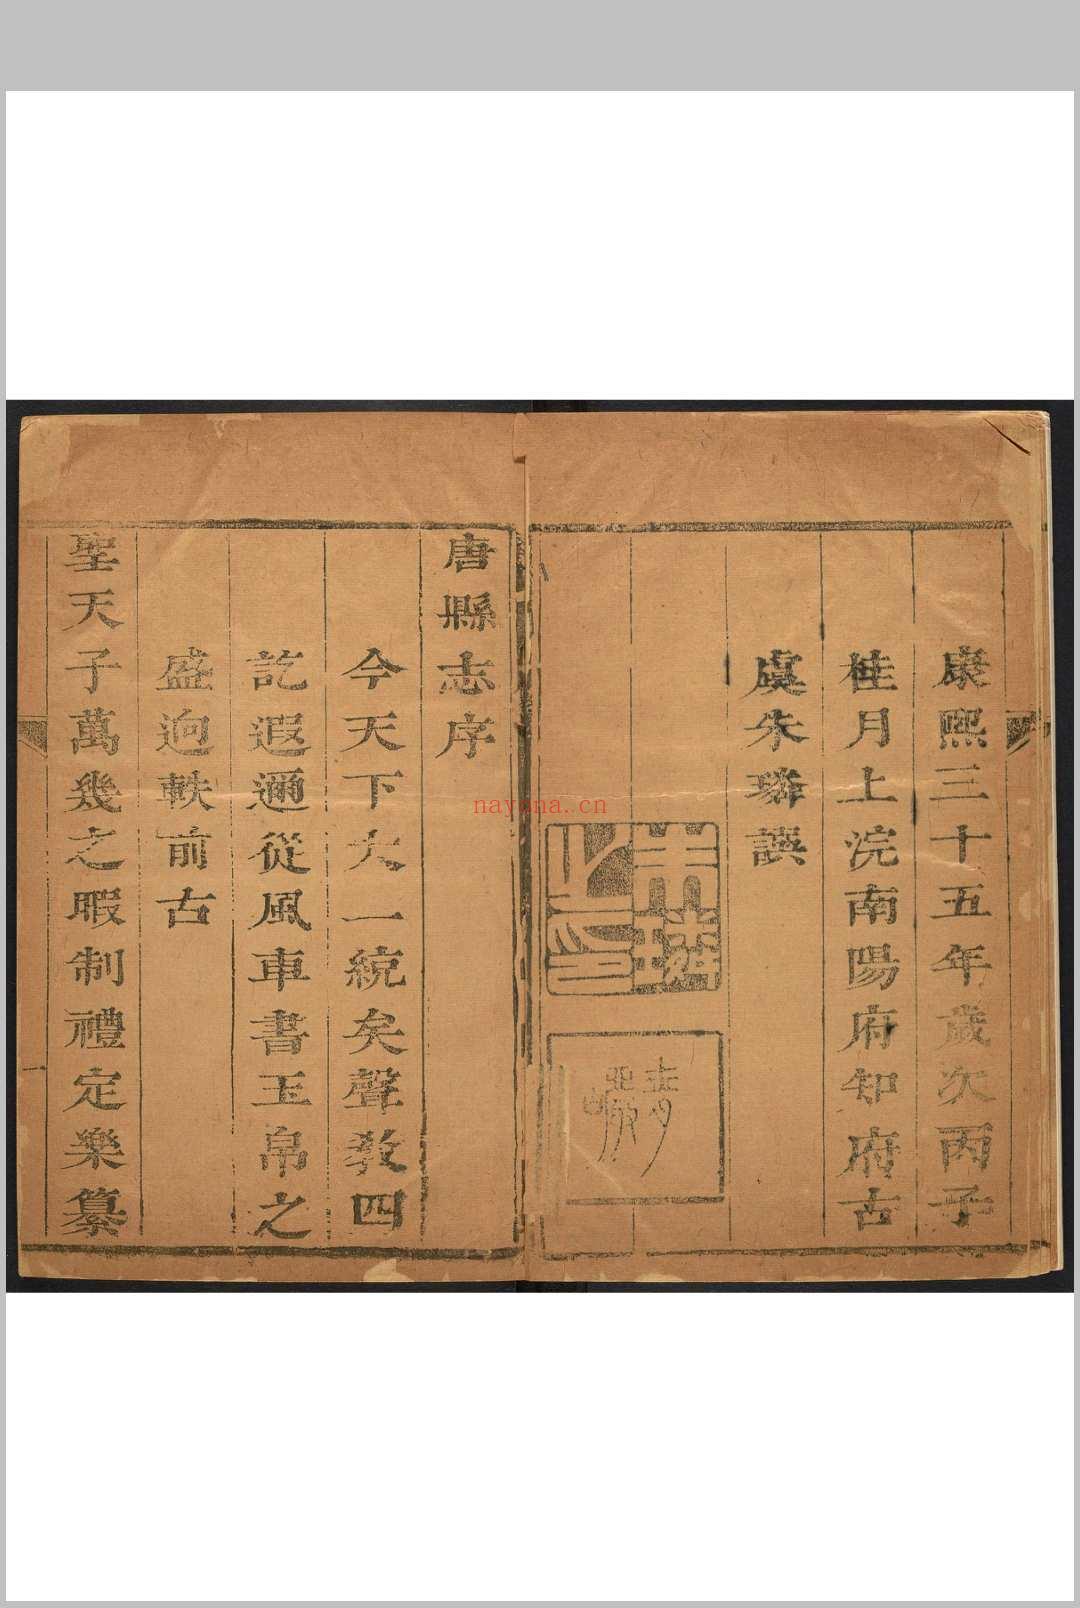 康熙三十五年歲次丙子
桂月上浣南陽府知府古
虞朱璘譔
朱璘之印
青巖
唐縣志序
今天下大一統矣聲教四
訖遐邇從風車書玉帛之
盛逈軼前古
聖天子萬幾之暇制禮定樂纂
一
nayona.cn